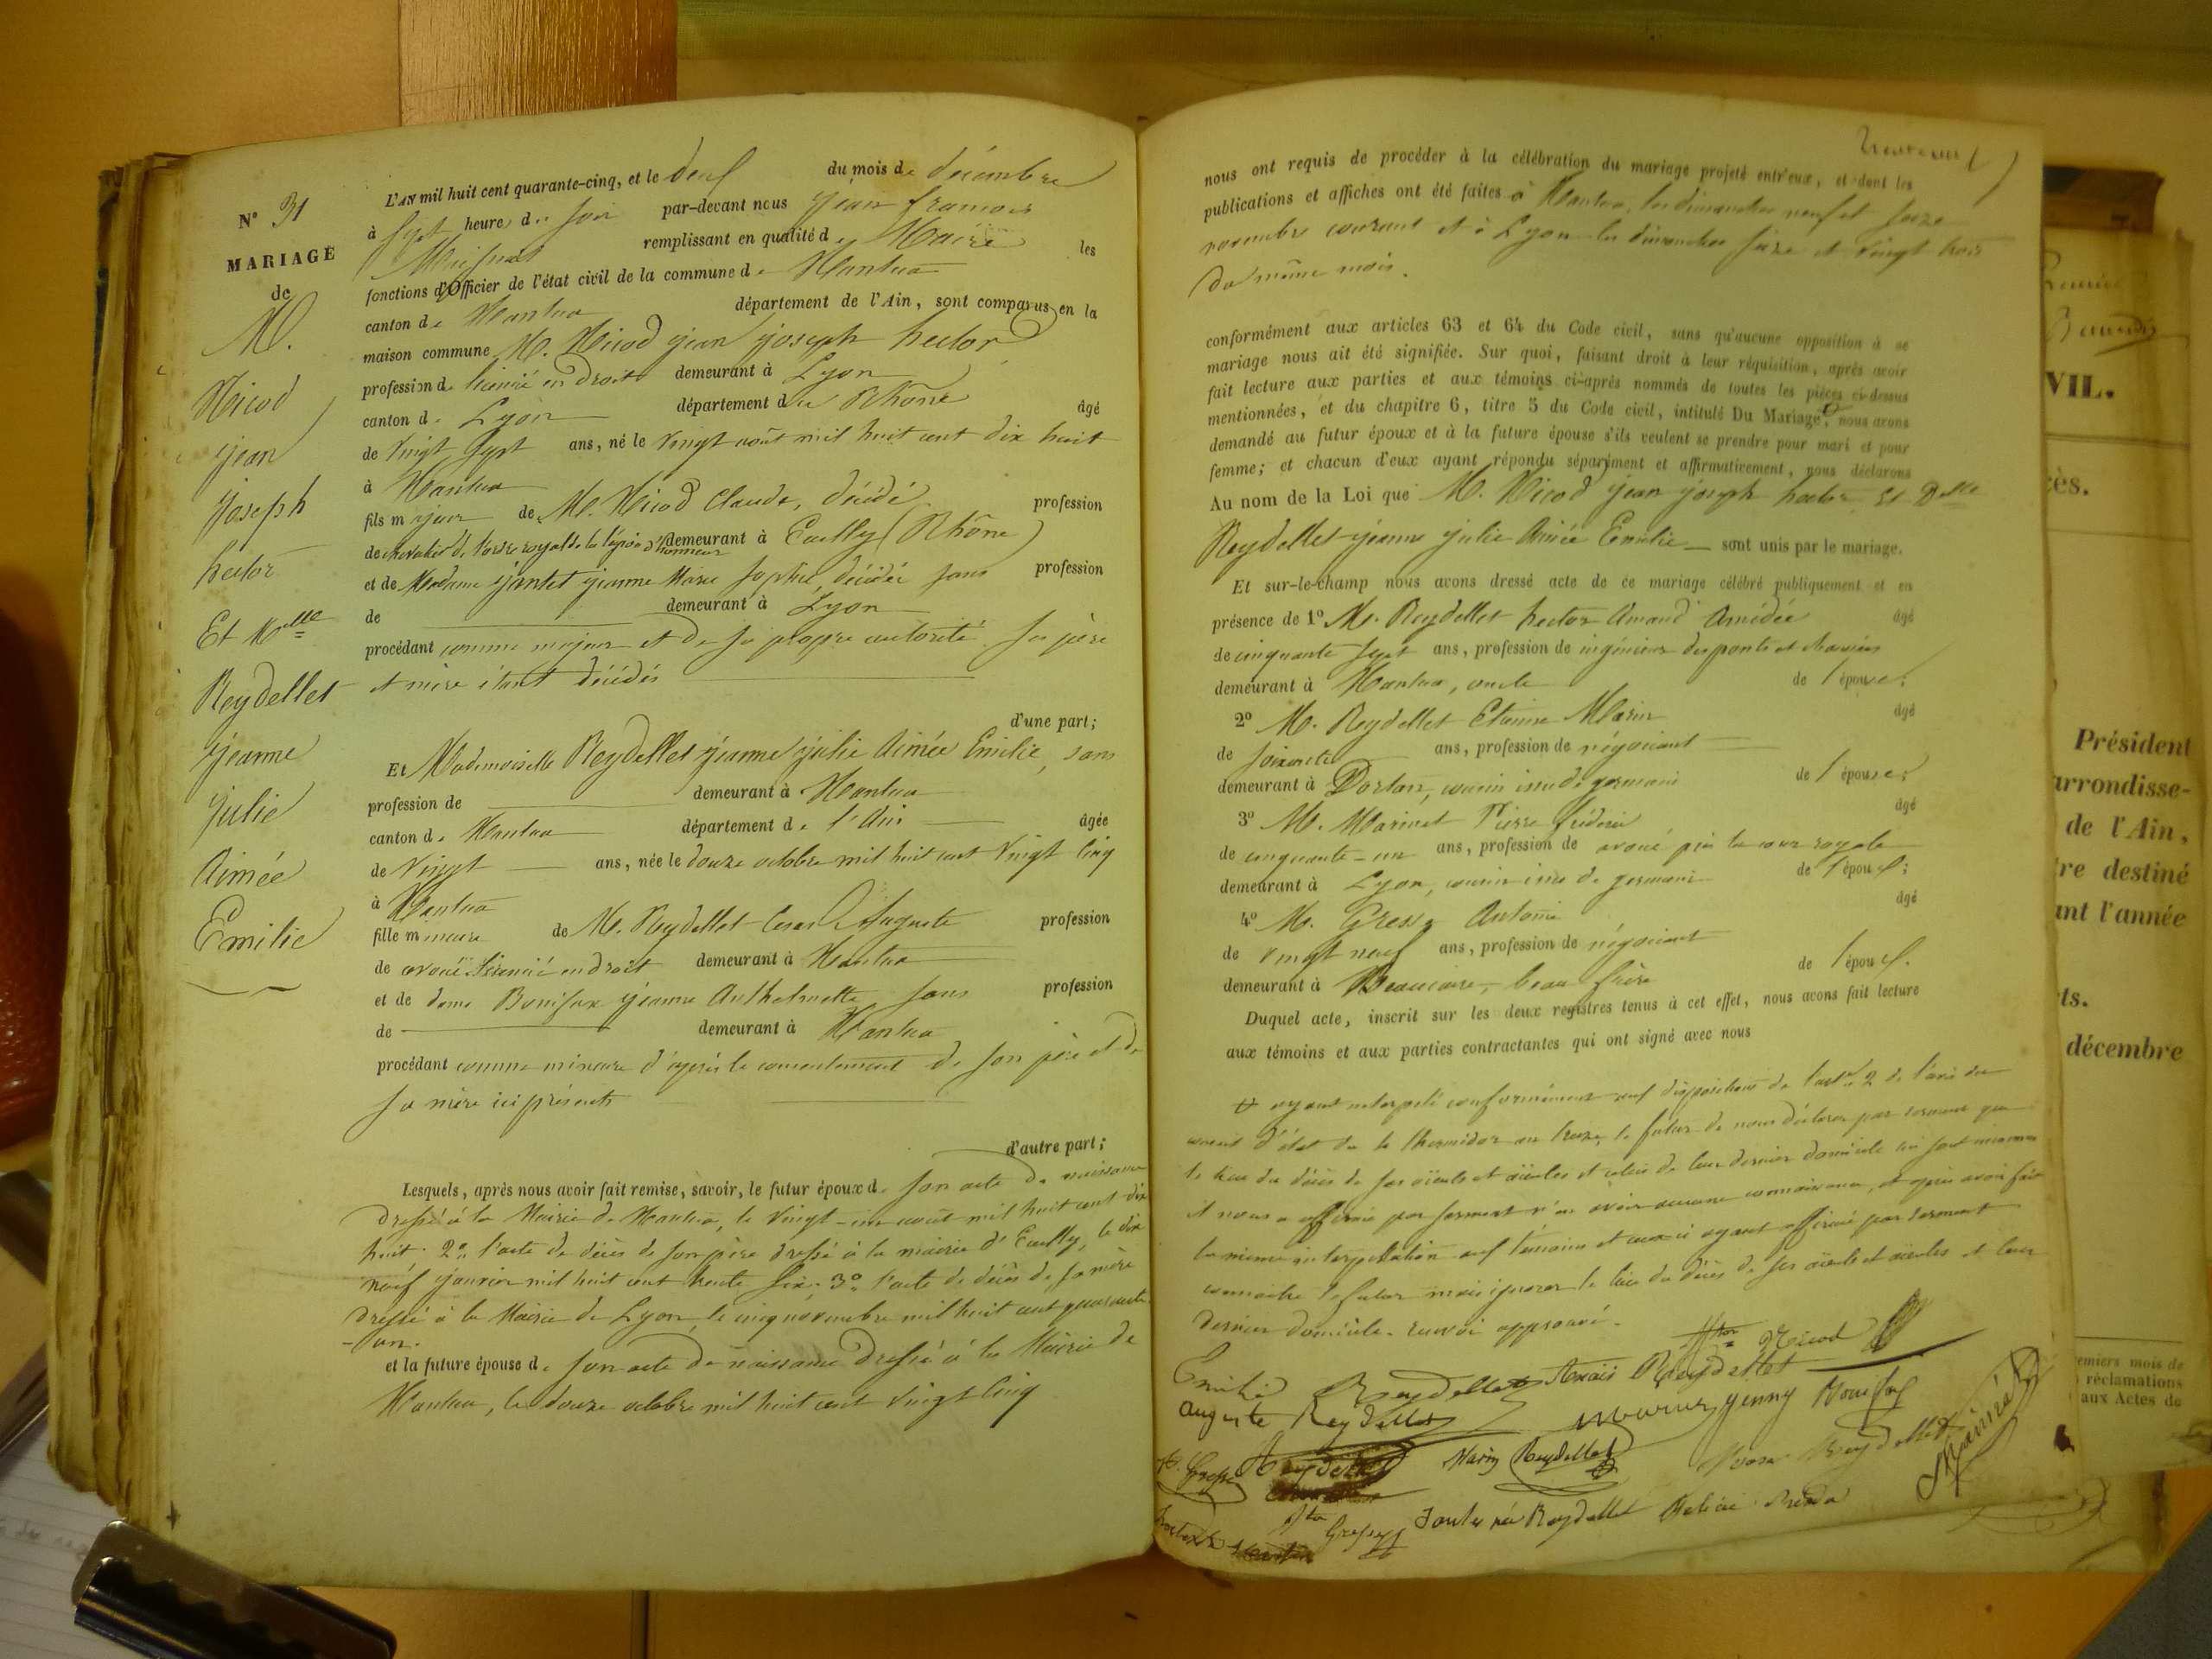 N° 31
MARIAGE
de
M.
Nicod
jean
joseph
hector
Et Melle
Reydellet
jeanne
julie
Aimée
Emilie
L'AN mil huit cent quarante-cinq, et le deux du mois de décembre
à sept heure du soir par-devant nous jean françois
remplissant en qualité de Maire les
fonctions d'Officier de l'état civil de la commune de Nantua
canton de Nantua département de l'Ain, sont comparus en la
maison commune M. Nicod jean joseph hector
profession de licencié en droit demeurant à Lyon
canton de Lyon département du Rhône âgé
de vingt sept ans, né le vingt août mil huit cent dix huit
à Nantua
fils majeur de M. Nicod Claude, décédé profession
de chevalier de l'ordre royal de la légion d'honneur demeurant à Ecully (Rhône)
et de Madame jantet jeanne Marie Sophie, décédée sans profession
de demeurant à Lyon
procédant comme majeur et de sa propre autorité ses père
et mère étant décédés
d'une part;
Et Mademoiselle Reydellet jeanne julie Aimée Emilie, sans
profession de demeurant à Nantua
canton de Nantua département de l'Ain âgée
de Vingt ans, née le douze octobre mil huit cent vingt cinq
à Nantua
fille mineure de M. Reydellet Cesar Auguste profession
de avoué licencié en droit demeurant à Nantua
et de dame Bonifax jeanne Anthelmette sans profession
de demeurant à Nantua
procédant comme mineure d'après le consentement de son père et de
sa mère ici présents
d'autre part;
Lesquels, après nous avoir fait remise, savoir, le futur époux de son acte de naissance
dressé à la Mairie de Nantua, le vingt-un août mil huit cent dix
huit. 2° l'acte de décès de son père dressé à la mairie d'Ecully, le dix
neuf janvier mil huit cent trente six. 3° l'acte de décès de sa mère
dressé à la Mairie de Lyon, le cinq novembre mil huit cent quarante
-un.
et la future épouse de son acte de naissance dressé à la Mairie de
Nantua, le douze octobre mil huit cent vingt cinq
nous ont requis de procéder à la célébration du mariage projeté entr'eux, et dont les
publications et affiches ont été faites à Nantua, les dimanches neuf et seize
novembre courant et à Lyon les dimanches seize et vingt trois
du même mois.
conformément aux articles 63 et 64 du Code civil, sans qu'aucune opposition à ce
mariage nous ait été signifiée. Sur quoi, faisant droit à leur réquisition, après avoir
fait lecture aux parties et aux témoins ci-après nommés de toutes les pièces ci-dessus
mentionnées, et du chapitre 6, titre 5 du Code civil, intitulé Du Mariage, nous avons
demandé au futur époux et à la future épouse s'ils veulent se prendre pour mari et pour
femme; et chacun d'eux ayant répondu séparément et affirmativement, nous déclarons
Au nom de la Loi que M. Nicod jean joseph hector Et Delle
Reydellet jeanne julie Aimée Emilie sont unis par le mariage.
Et sur-le-champ nous avons dressé acte de ce mariage célébré publiquement et en
présence de 1° M. Reydellet hector Amand Amédée âgé
de cinquante sept ans, profession de ingénieur des ponts et chaussées
demeurant à Nantua, oncle de l'épouse;
2° M. Reydellet Etienne Marin âgé
de soixante ans, profession de négociant
demeurant à Dortan, cousin issu de germain de l'épouse;
3° M. Marinet Pierre fréderic âgé
de cinquante-un ans, profession de avoué près la cour royale
demeurant à Lyon, cousin issu de germain de l'époux;
4° M. Gresse Antoine âgé
de vingt neuf ans, profession de négociant
demeurant à Beaucaire, beau frère de l'époux.
Duquel acte, inscrit sur les deux registres tenus à cet effet, nous avons fait lecture
aux témoins et aux parties contractantes qui ont signé avec nous
ayant interpelé conformément aux dispositions de l'arte 2 de l'avis du
conseil d'état du 4 thermidor an treize, le futur de nous déclarer par serment que
le lieu du décès de ses aïeuls et aïeules et celui de leur dernier domicile lui sont inconnus
il nous a affirmé par serment n'en avoir aucune connaissance, et après avoir fait
la même interpellation aux témoins et ceux-ci ayant affirmé par serment
connaitre le futur mais ignorer le lieu du décès de ses aïeuls et aïeules et leur
dernier domicile. renvoi approuvé.
Hor Nicod
Emilie Reydellet Anaïs Reydellet
Auguste Reydellet Jenny Bonifax
Gresse Reydellet Marin Reydellet Reydellet
Gresse née Reydellet
VIL.
cès.
Président
arrondisse-
de l'Ain,
re destiné
ant l'année
ts.
décembre
emiers mois de
réclamations
aux Actes de